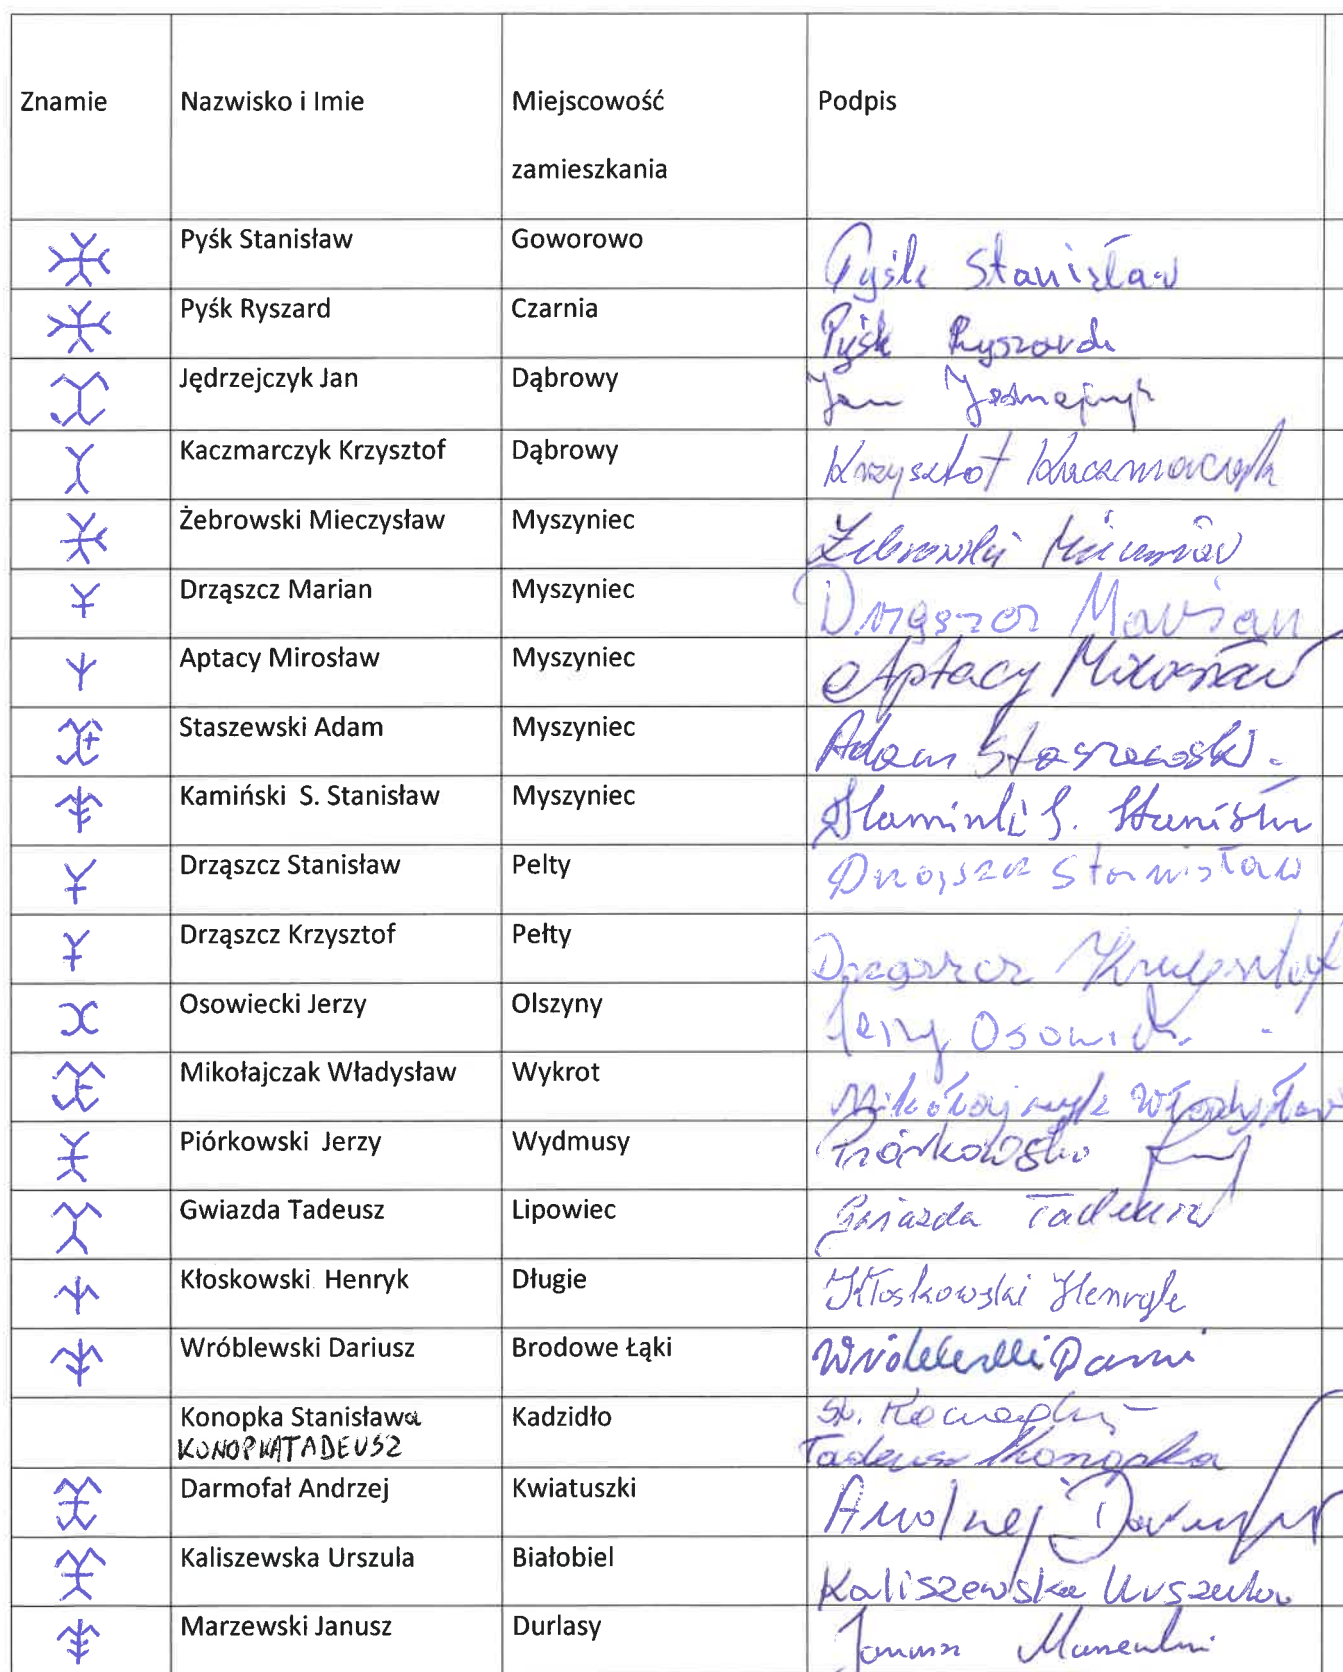 Znamie Nazwisko i Imie Miejscowość Podpis
zamieszkania
Pyśk Stanisław Goworowo Pyśk Stanisław
Pyśk Ryszard Czarnia Pyśk Ryszard
Jędrzejczyk Jan Dąbrowy Jan Jędrzejczyk
Kaczmarczyk Krzysztof Dąbrowy Krzysztof Kaczmarczyk
Żebrowski Mieczysław Myszyniec Żebrowski Mieczysław
Drząszcz Marian Myszyniec Drząszcz Marian
Aptacy Mirosław Myszyniec Aptacy Mirosław
Staszewski Adam Myszyniec Adam Staszewski.
Kamiński S. Stanisław Myszyniec Kamiński S. Stanisław
Drząszcz Stanisław Pelty Drząszcz Stanisław
Drząszcz Krzysztof Pełty Drząszcz Krzysztof
Osowiecki Jerzy Olszyny Jerzy
Mikołajczak Władysław Wykrot Mikołajczyk Władysław
Piórkowski Jerzy Wydmusy Piórkowski
Gwiazda Tadeusz Lipowiec Gwiazda Tadeusz
Kłoskowski Henryk Długie Kłoskowski Henryk
Wróblewski Dariusz Brodowe Łąki Wróblewski
Konopka Stanisława Kadzidło St.
KONOPKA TADEUSZ Tadeusz Konopka
Darmofał Andrzej Kwiatuszki Andrzej
Kaliszewska Urszula Białobiel Kaliszewska Urszula
Marzewski Janusz Durlasy Janusz Marzewski